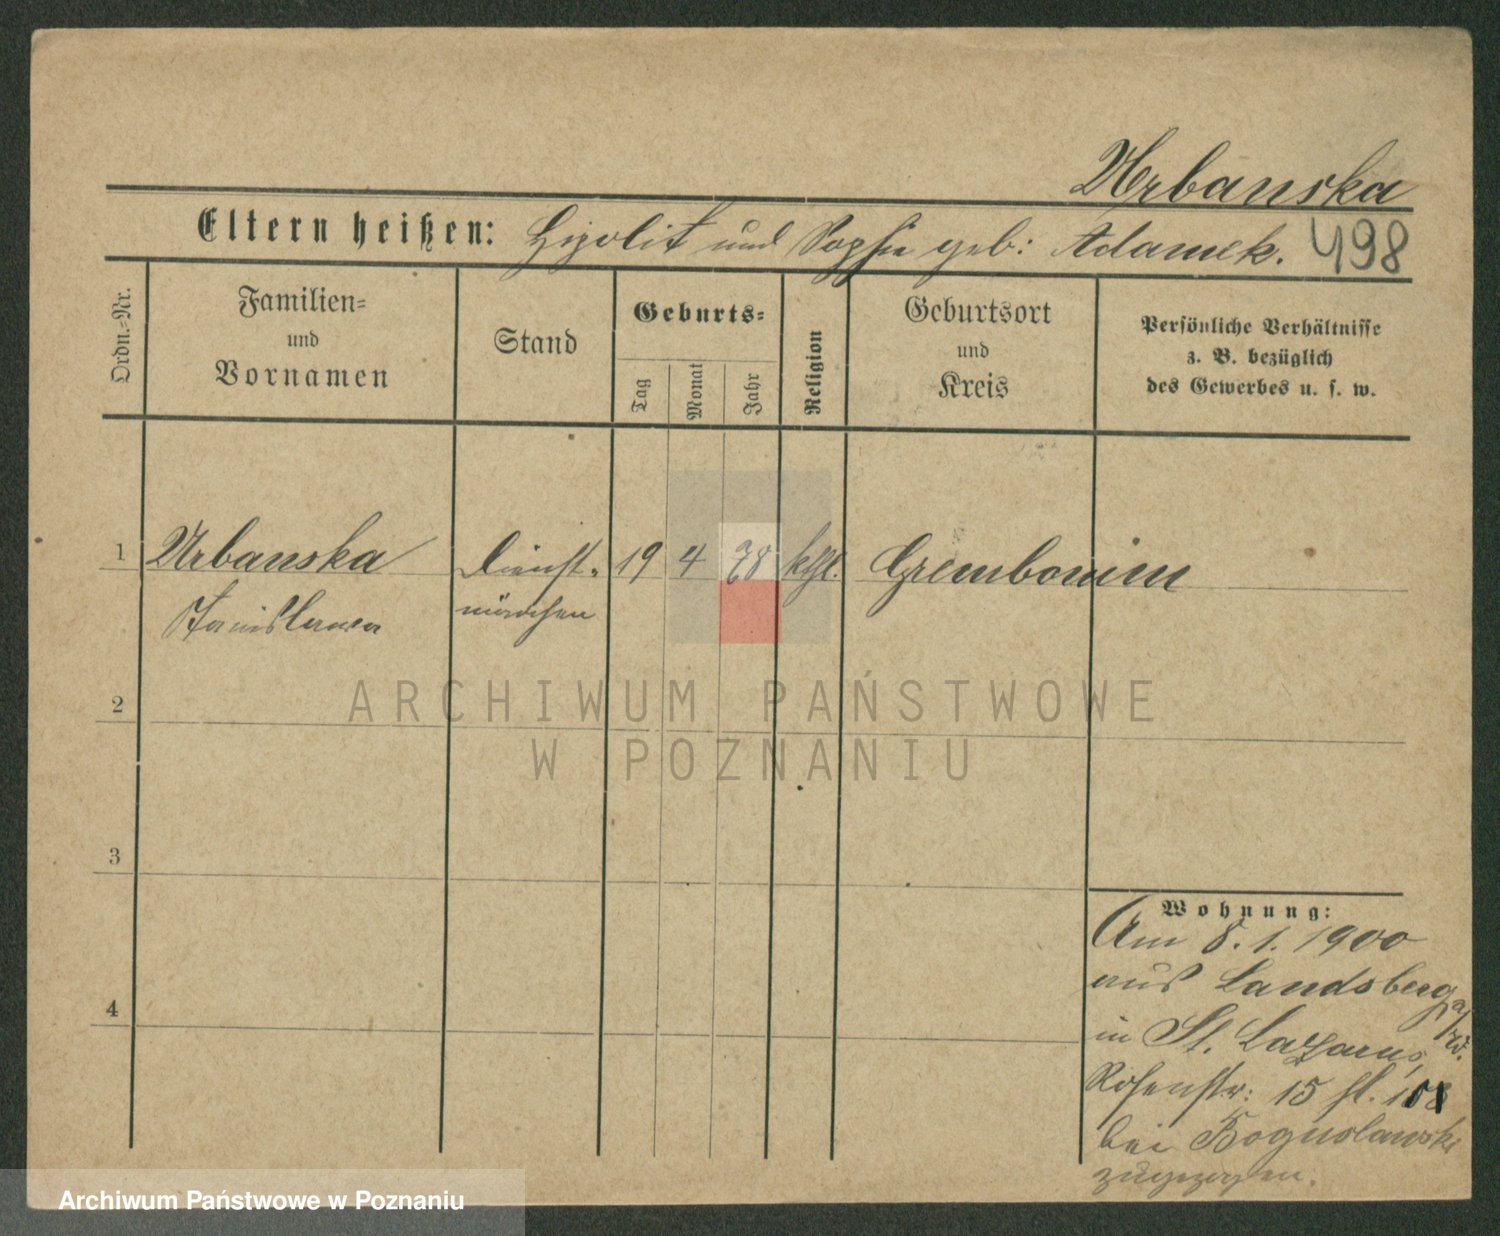 Urbanska
Eltern heißen: Hypolit und Sophie geb: Adamek. 498
Ordn.-Nr.
Familien-
und
Vornamen
Stand
Geburts-
Tag
Monat
Jahr
Religion
Geburtsort
und
Kreis
Persönliche Verhältnisse
z. B. bezüglich
des Gewerbes u. s. w.
1 Urbanska Dienst- 19 4 78 kthl. Grembonim
Stanislawa mädchen
2
ARCHIWUM PAŃSTWOWE
W POZNANIU
3
4
Wohnung:
Am 8. 1. 1900
aus Landsberg a/W.
in St. Lazarus,
Rosenstr: 15
bei Boguslawski
zugezogen.
Archiwum Państwowe w Poznaniu